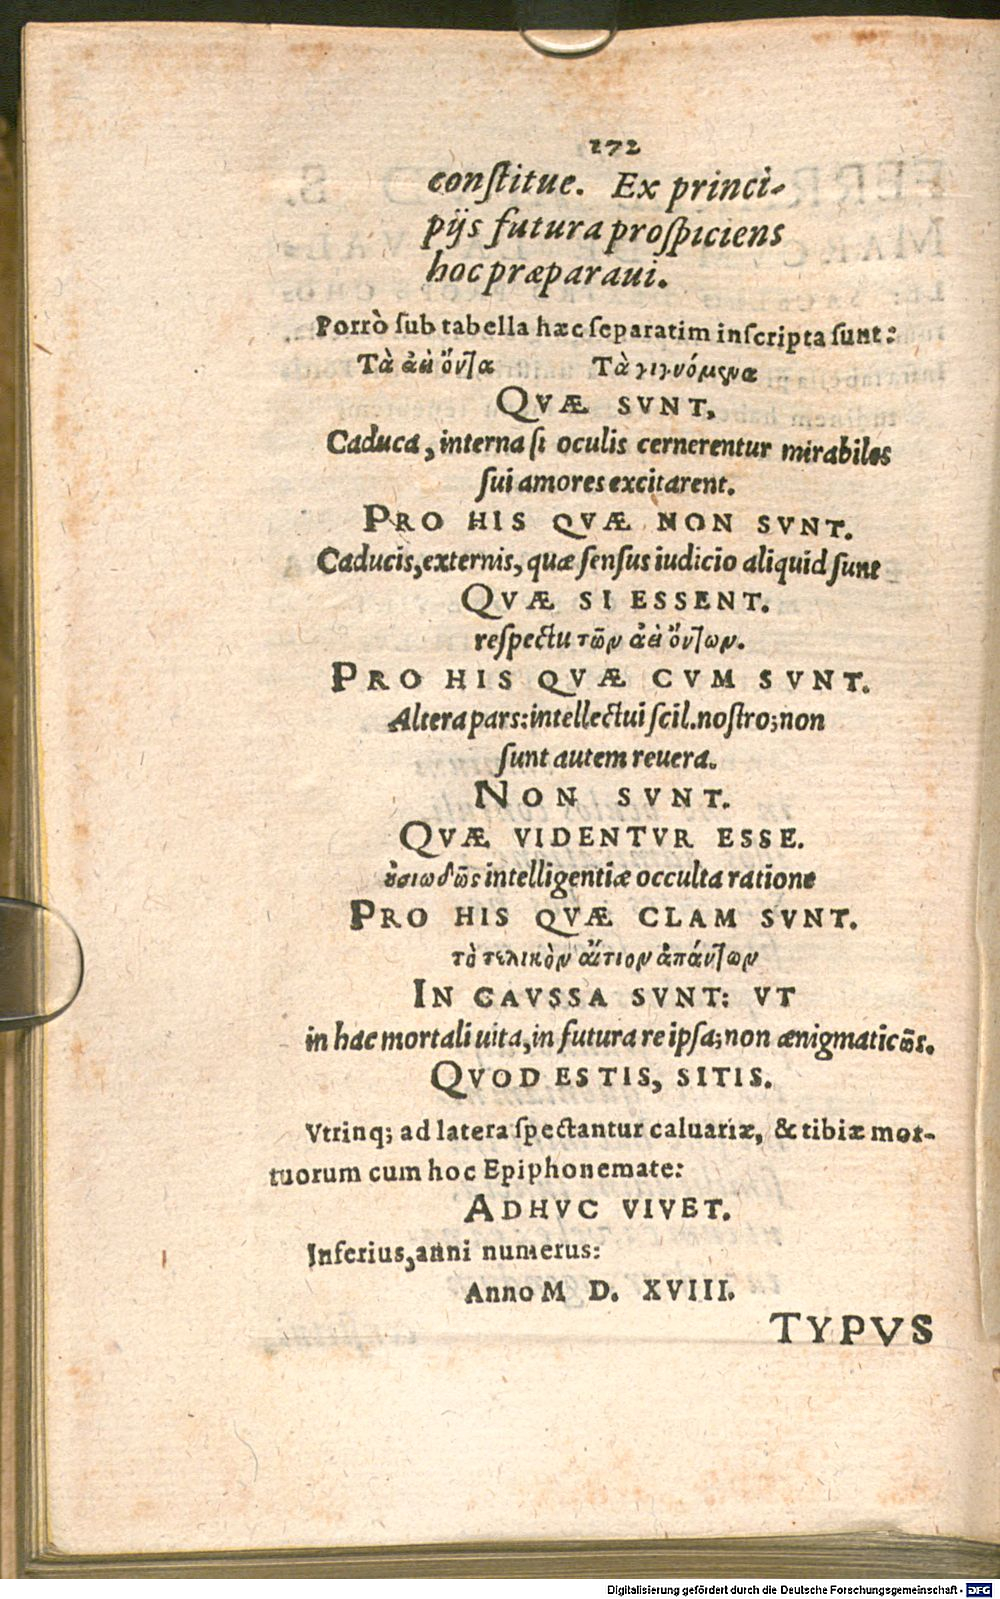 172
conſtitue. Ex princi-
pijs futura proſpiciens
hoc præparaui.
Porrò ſub tabella hæc ſeparatim inſcripta ſunt:
Τὰ ἀεὶ ὄντα Τὰ γιγνόμενα
QVÆ SVNT,
Caduca, interna ſi oculis cernerentur mirabiles
ſui amores excitarent.
PRO HIS QVÆ NON SVNT.
Caducis, externis, quæ ſenſus iudicio aliquid ſunt
QVÆ SI ESSENT.
reſpectu τῶν ἀεὶ ὄντων.
PRO HIS QVÆ CVM SVNT.
Altera pars: intellectui ſcil. noſtro; non
ſunt autem reuera.
NON SVNT.
QVÆ VIDENTVR ESSE.
οὐσιωδῶς intelligentiæ occulta ratione
PRO HIS QVÆ CLAM SVNT.
τὸ τελικὸν αἴτιον ἁπάντων
IN CAVSSA SVNT: VT
in hac mortali uita, in futura re ipſa; non ænigmaticῶs.
QVOD ESTIS, SITIS.
Vtrinq; ad latera ſpectantur caluariæ, & tibiæ mor-
tuorum cum hoc Epiphonemate:
ADHVC VIVET.
Inferius, anni numerus:
Anno M D. XVIII.
TYPVS
Digitalisierung gefördert durch die Deutsche Forschungsgemeinschaft - DFG